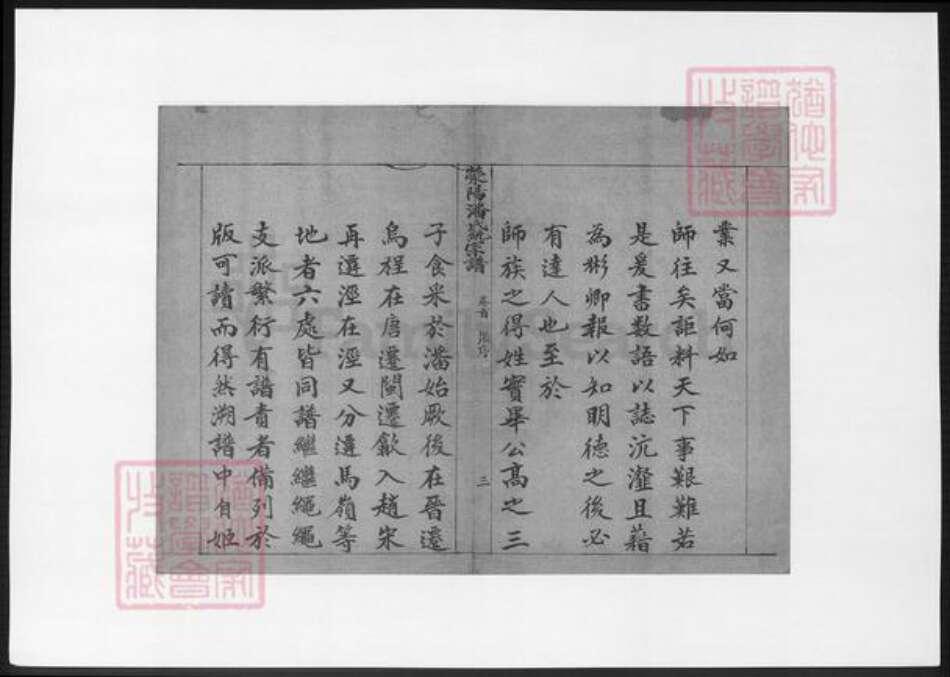 業又當何如
師往矣詎料天下事艱難若
是爰書数語以誌沆瀣且藉
為彬卿報以知明德之後必
有達人也至於
師族之得姓實畢公高之三
滎陽潘氏宗譜
卷首
三
子食采於潘始厥後在晉遷
烏程在唐遷閩遷歙入趙宋
再遷涇在涇又分遷馬嶺等
地者六處皆同譜繼繼繩繩
支派繁衍有譜責者備列於
版可讀而得然溯譜中自姬
譜學會
收藏
譜學會
收藏